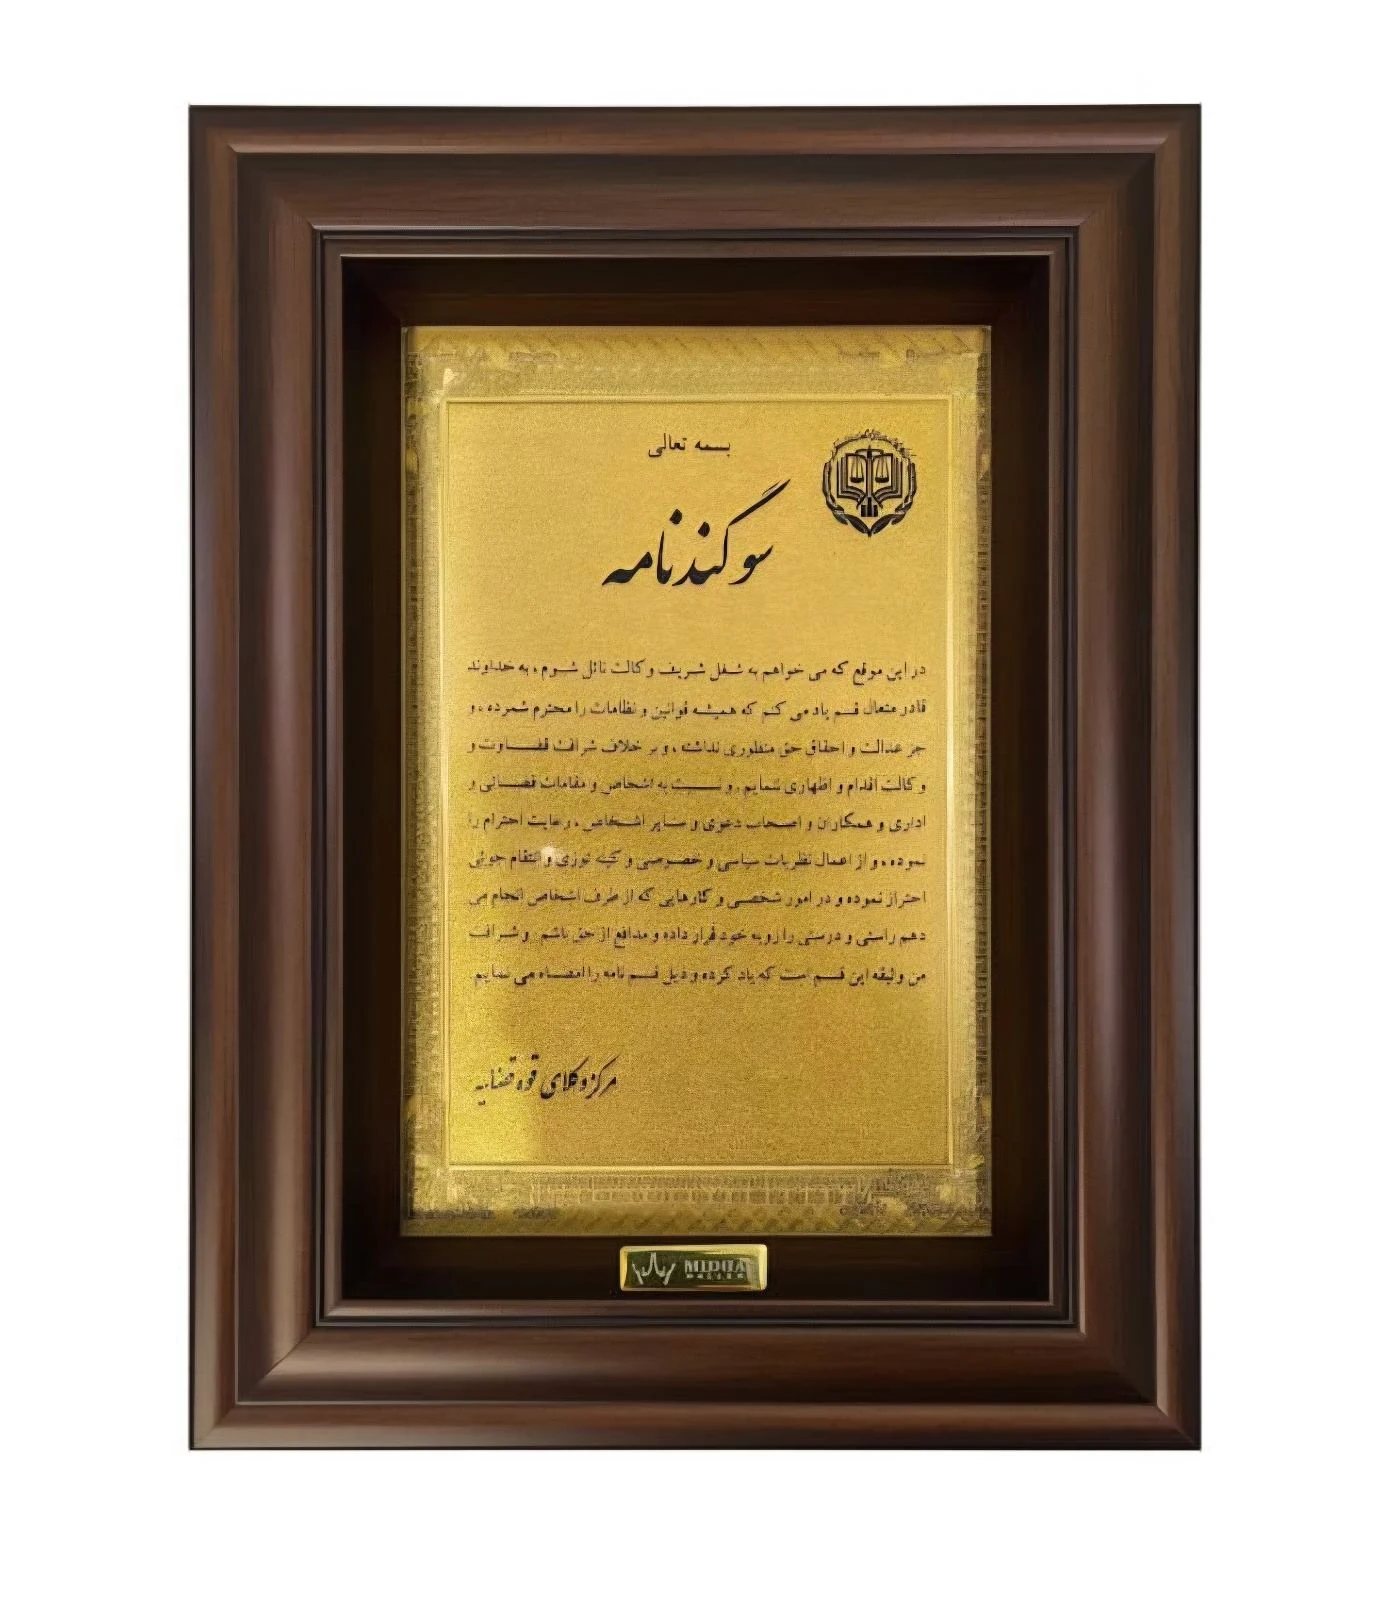 بسمه تعالی
سوگندنامه
در این موقع که می خواهم به شغل شریف وکالت نائل شوم ، به خداوند
قادر متعال قسم یاد می کنم که همیشه قوانین و نظامات را محترم شمرده ، و
جز عدالت و احقاق حق منظوری نداشته ، و بر خلاف شرافت قضاوت و
وکالت اقدام و اظهاری ننمایم . و نسبت به اشخاص و مقامات قضائی و
اداری و همکاران و اصحاب دعوی و سایر اشخاص ، رعایت احترام را
نموده ، و از اعمال نظریات سیاسی و خصوصی و کینه توزی و انتقام جوئی
احتراز نموده و در امور شخصی و کارهایی که از طرف اشخاص انجام می
دهم راستی و درستی را رویه خود قرار داده و مدافع از حق باشم . و شرافت
من وثیقه این قسم است که یاد کرده و ذیل قسم نامه را امضاء می نمایم
مرکز وکلای قوه قضاییه